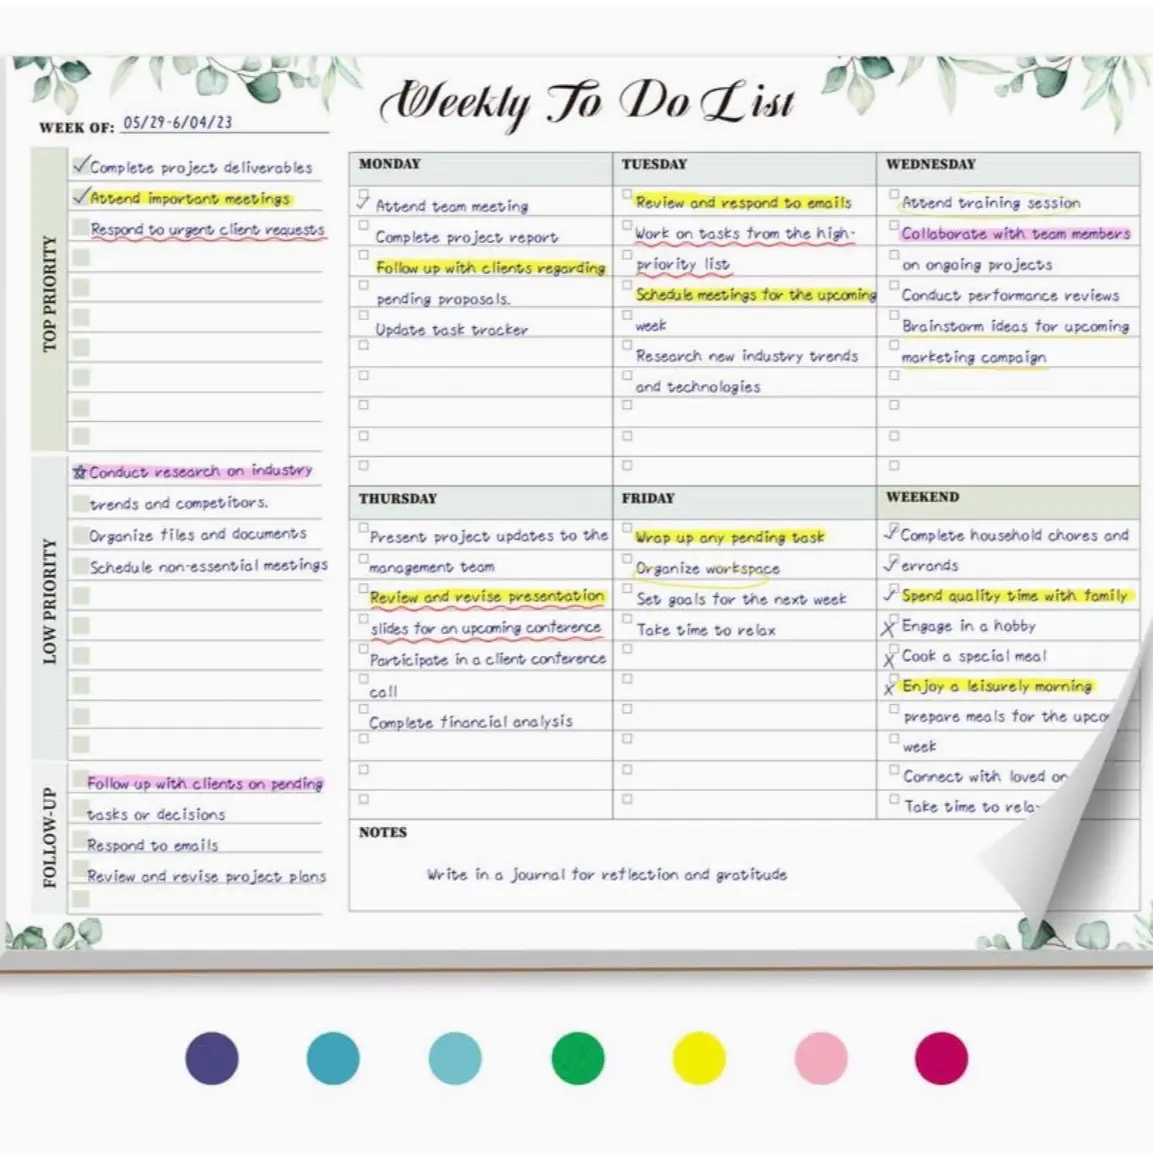 Weekly To Do List
WEEK OF: 05/29-6/04/23
TOP PRIORITY
Complete project deliverables
Attend important meetings
Respond to urgent client requests
LOW PRIORITY
Conduct research on industry
trends and competitors.
Organize files and documents
Schedule non-essential meetings
FOLLOW-UP
Follow up with clients on pending
tasks or decisions
Respond to emails
Review and revise project plans
MONDAY
Attend team meeting
Complete project report
Follow up with clients regarding
pending proposals.
Update task tracker
TUESDAY
Review and respond to emails
Work on tasks from the high-
priority list
Schedule meetings for the upcoming
week
Research new industry trends
and technologies
WEDNESDAY
Attend training session
Collaborate with team members
on ongoing projects
Conduct performance reviews
Brainstorm ideas for upcoming
marketing campaign
THURSDAY
Present project updates to the
management team
Review and revise presentation
slides for an upcoming conference
Participate in a client conference
call
Complete financial analysis
FRIDAY
Wrap up any pending task
Organize workspace
Set goals for the next week
Take time to relax
WEEKEND
Complete household chores and
errands
Spend quality time with family
Engage in a hobby
Cook a special meal
Enjoy a leisurely morning
prepare meals for the
week
Connect with loved
Take time to
NOTES
Write in a journal for reflection and gratitude